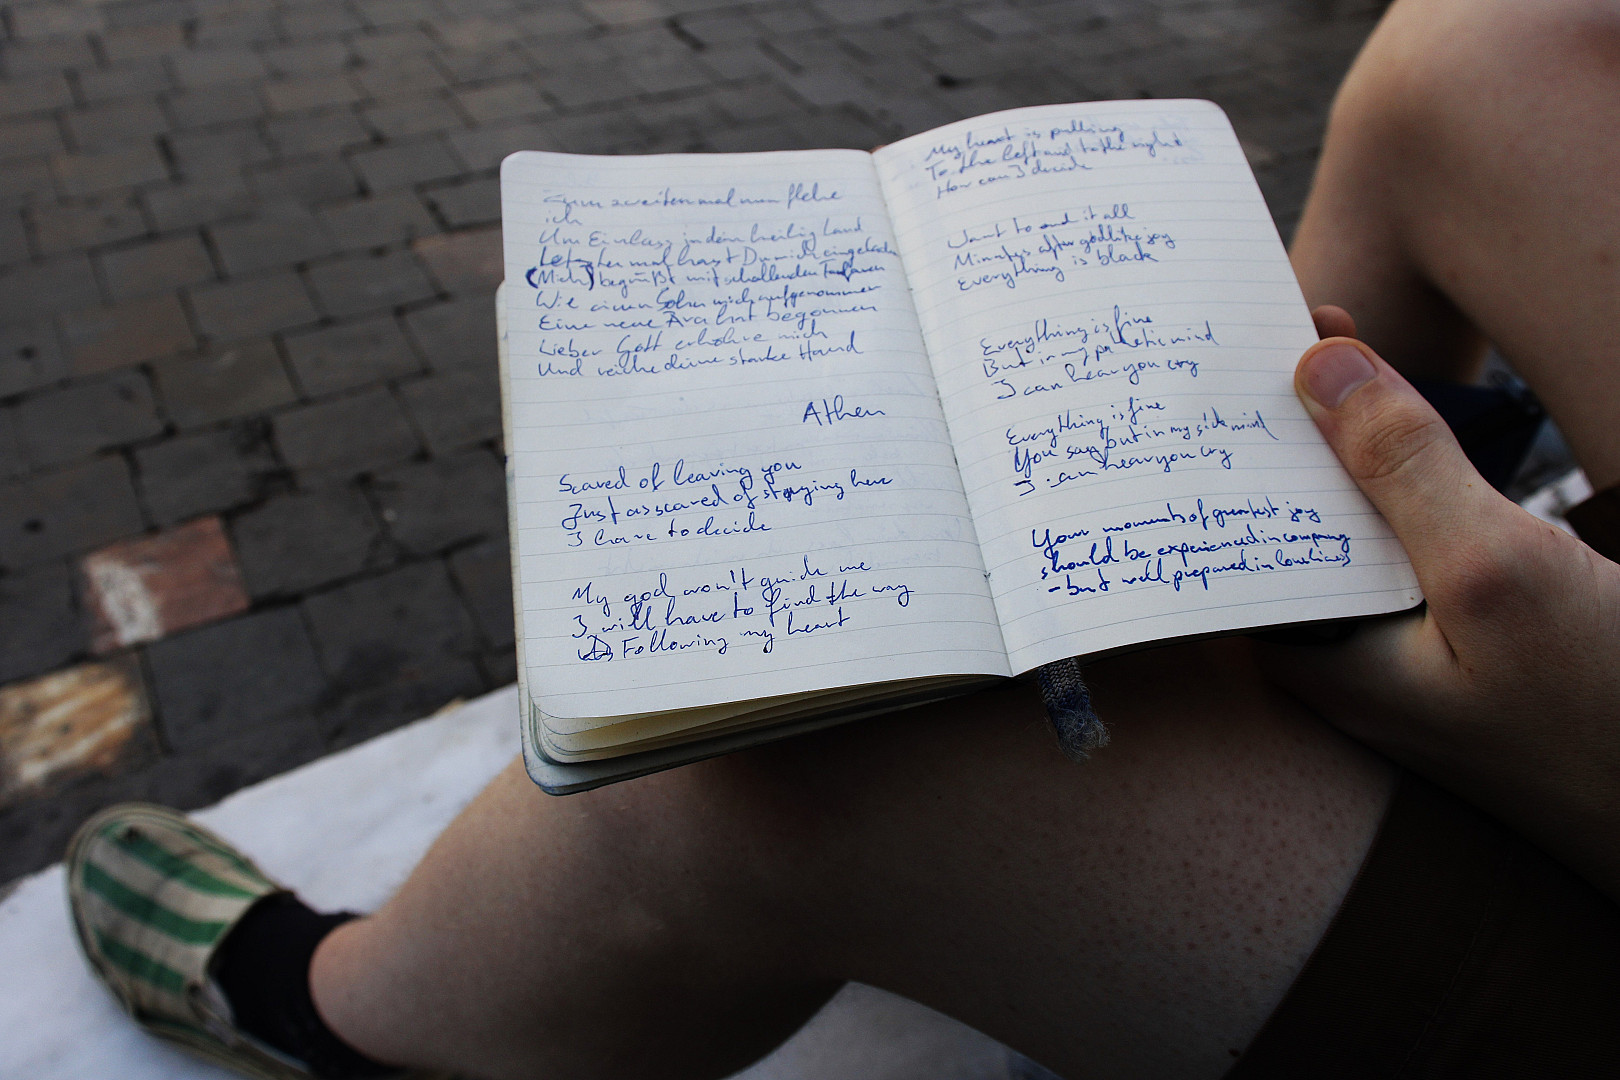 Zum zweiten mal nun flehe
ich
Um Einlass in dein heilig Land
Letztes mal hast Du mich eingeladen
(Mich) begrüßt mit schallenden Fanfaren
Wie einen Sohn mich aufgenommen
Eine neue Ära hat begonnen
Lieber Gott erhöhre mich
Und reiche deine starke Hand
Athen
Scared of leaving you
Just as scared of staying here
I have to decide
My god won't guide me
I will have to find the way
Following my heart
My heart is pulling
To the left and to the right
How can I decide
Want to end it all
Minutes after godlike joy
Everything is black
Everything is fine
But in my pathetic mind
I can hear you cry
Everything is fine
You say but in my sick mind
I can hear you cry
Your moments of greatest joy
should be experienced in company
- but well prepared in loneliness